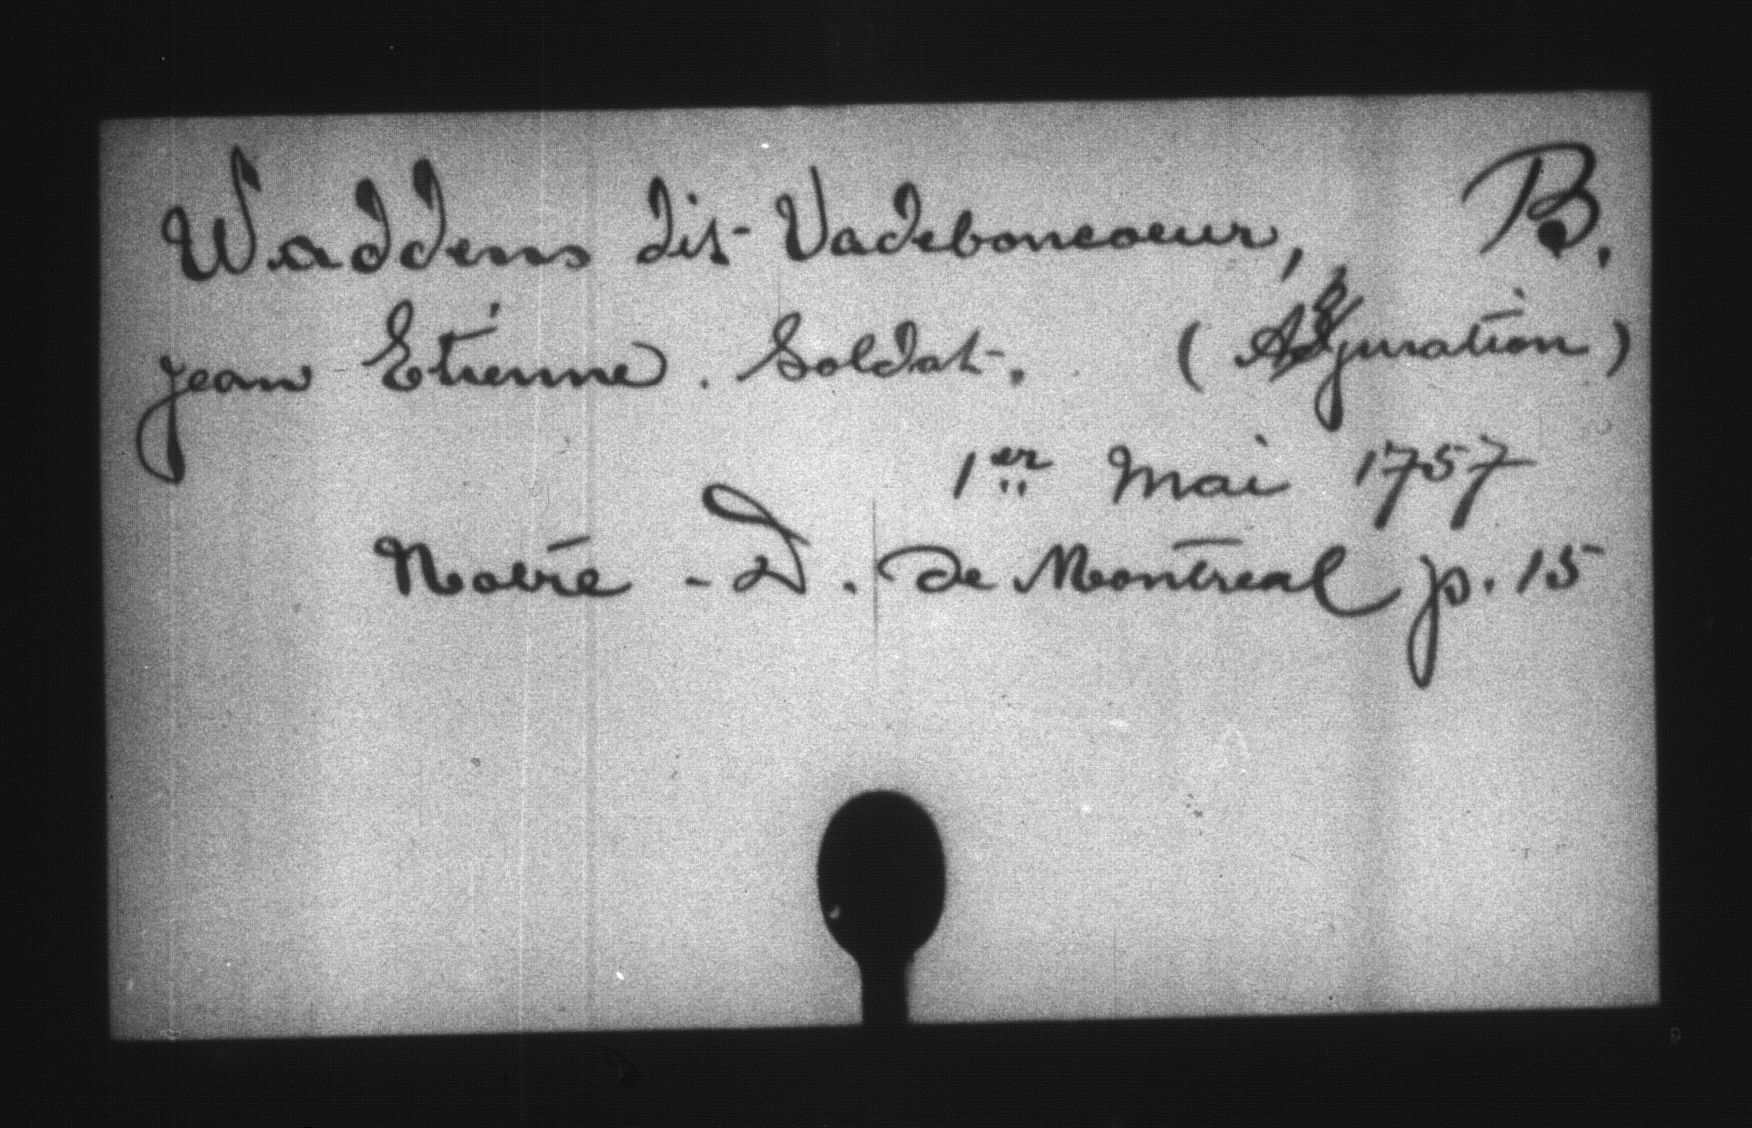 Waddens dit Vadeboncoeur, B.
Jean Etienne. Soldat. (Abjuration)
1er Mai 1757
Notre-D. de Montreal p. 15